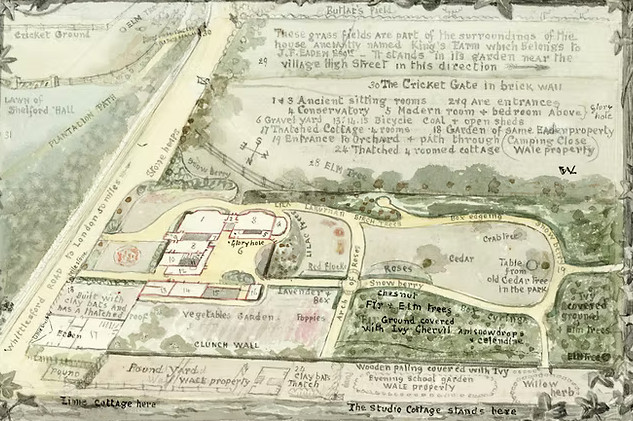 Butlar's Field
ELM TREES
Cricket Ground
These grass fields are part of the surroundings of the
house anciently named King's Farm which belongs to
J.F. EADEN Esqr - It stands in its garden near the
village High Street in this direction
29
30 The Cricket Gate in brick wall
1 & 3 Ancient sitting rooms 2 & 9 are entrances
4 Conservatory 5 Modern room & bedroom above
Glory hole
6 Gravel yard 13: 14: 15 Bicycle coal & open sheds
17 Thatched Cottage 4 rooms 18 Garden of same Eaden property
19 Entrance to Orchard & path through Camping Close
24 Thatched 4 roomed cottage WALE property
LAWN OF
Shelford Hall
31
PLANTATION PATH
Stone house
Snowberry
28 ELM Trees
Whittlesford Road to London 50 miles
LABURNUM BIRCH TREES
Box edging
Snowberry
1
3
Glory hole
6
LILAC TREES
Red Flock
ARCH OF ROSES
Roses
Cedar
Crab tree
Table
from
old Cedar tree
in the park
19
10
12
13
14
15
Snowberry
Lavender &
Box
Poppies
Vegetables Garden
CLUNCH WALL
Built with
clay bats and
has a thatched
roof
Eaden
17
Chestnut
Fir & Elm trees
Ground covered
with Ivy Chervil
Box cuttings
covered
ground
Elm Trees
Elm Tree
POUND
Pound Yard
WALE property
24
CLAY BATS
THATCH
Wooden paling covered with Ivy
Evening school garden
WALE property
Willow
herb
Lime Cottage here
The Studio Cottage stands here